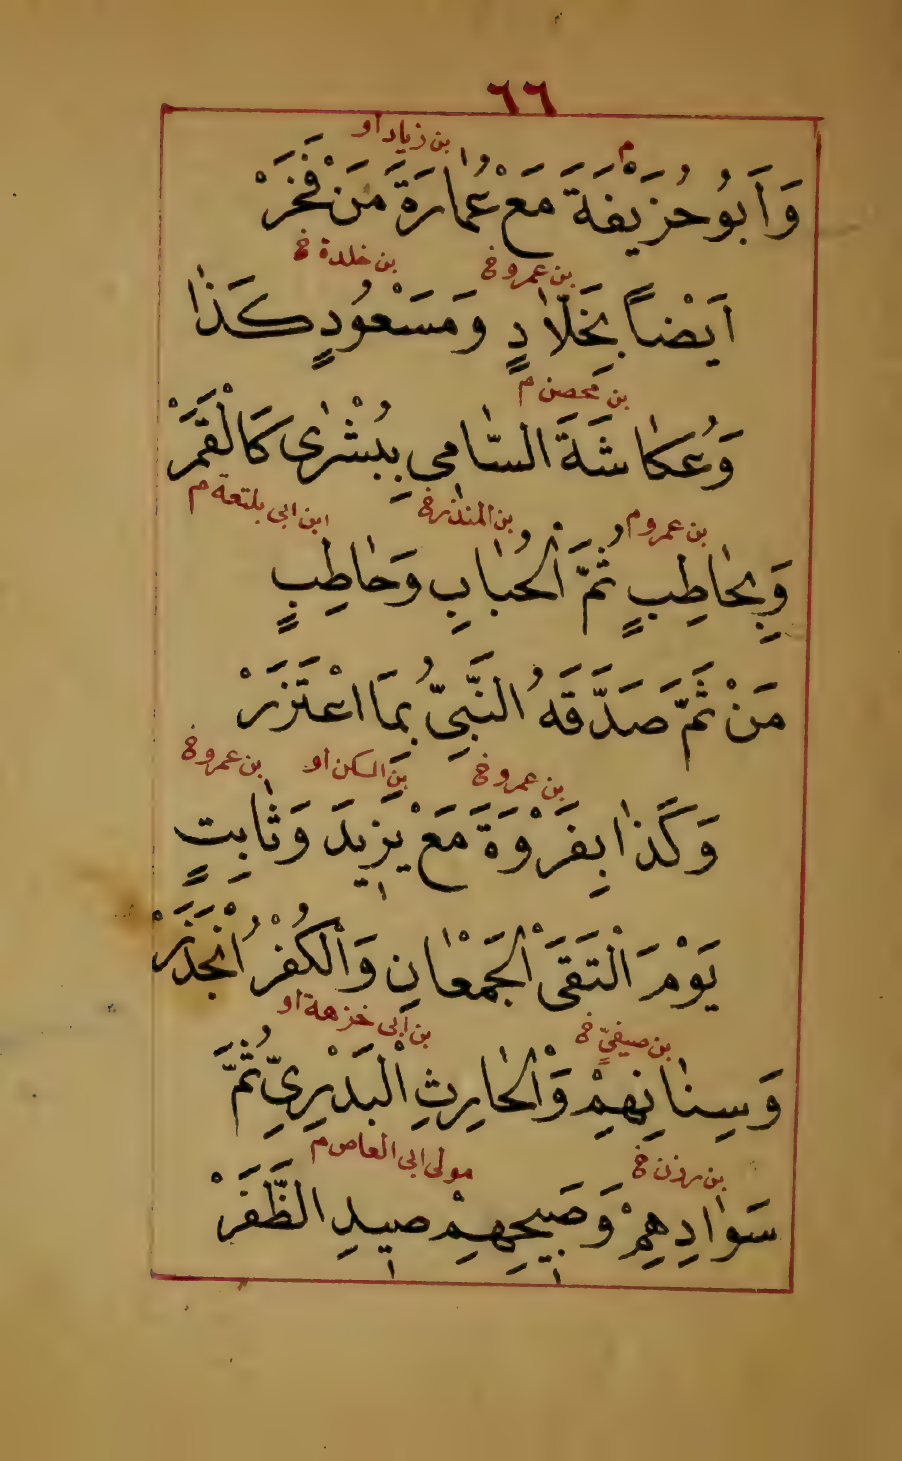 ٦٦
م بن زياد او
وَاَبُو حُزَيْفَةَ مَعْ عُمارَةَ مَنْ فَخَرْ
بن عمرو خ بن خلدة خ
اَيْضاً بِخَلّادٍ وَمَسْعُودٍ كَذا
بن محصن م
وَعُكاشَةَ السّامى بِبُشْرٰى كَالْقَمَرْ
بن عمرو م بن المنذر خ ابن ابى بلتعة م
وَبِحاطِبٍ ثُمَّ الْحُبابِ وَحاطِبٍ
مَنْ ثَمَّ صَدَّقَهُ النَّبِىُّ بِمَا اعْتَزَرْ
بن عمرو خ بن السكن او بن عمرو خ
وَكَذا بِفَرْوَةَ مَعْ يَزيدَ وَثابِتٍ
يَوْمَ الْتَقَى الْجَمْعانِ وَالْكُفْرُ انْجَذَرْ
بن صيفىٍّ خ بن ابى خزمة او
وَسِنانِهِمْ وَالْحارِثِ الْبَدْرِىِّ ثُمَّ
بن رزن خ مولى ابى العاص م
سَوادِهِمْ وَصَبيحِهِمْ صيدِ الظَّفَرْ